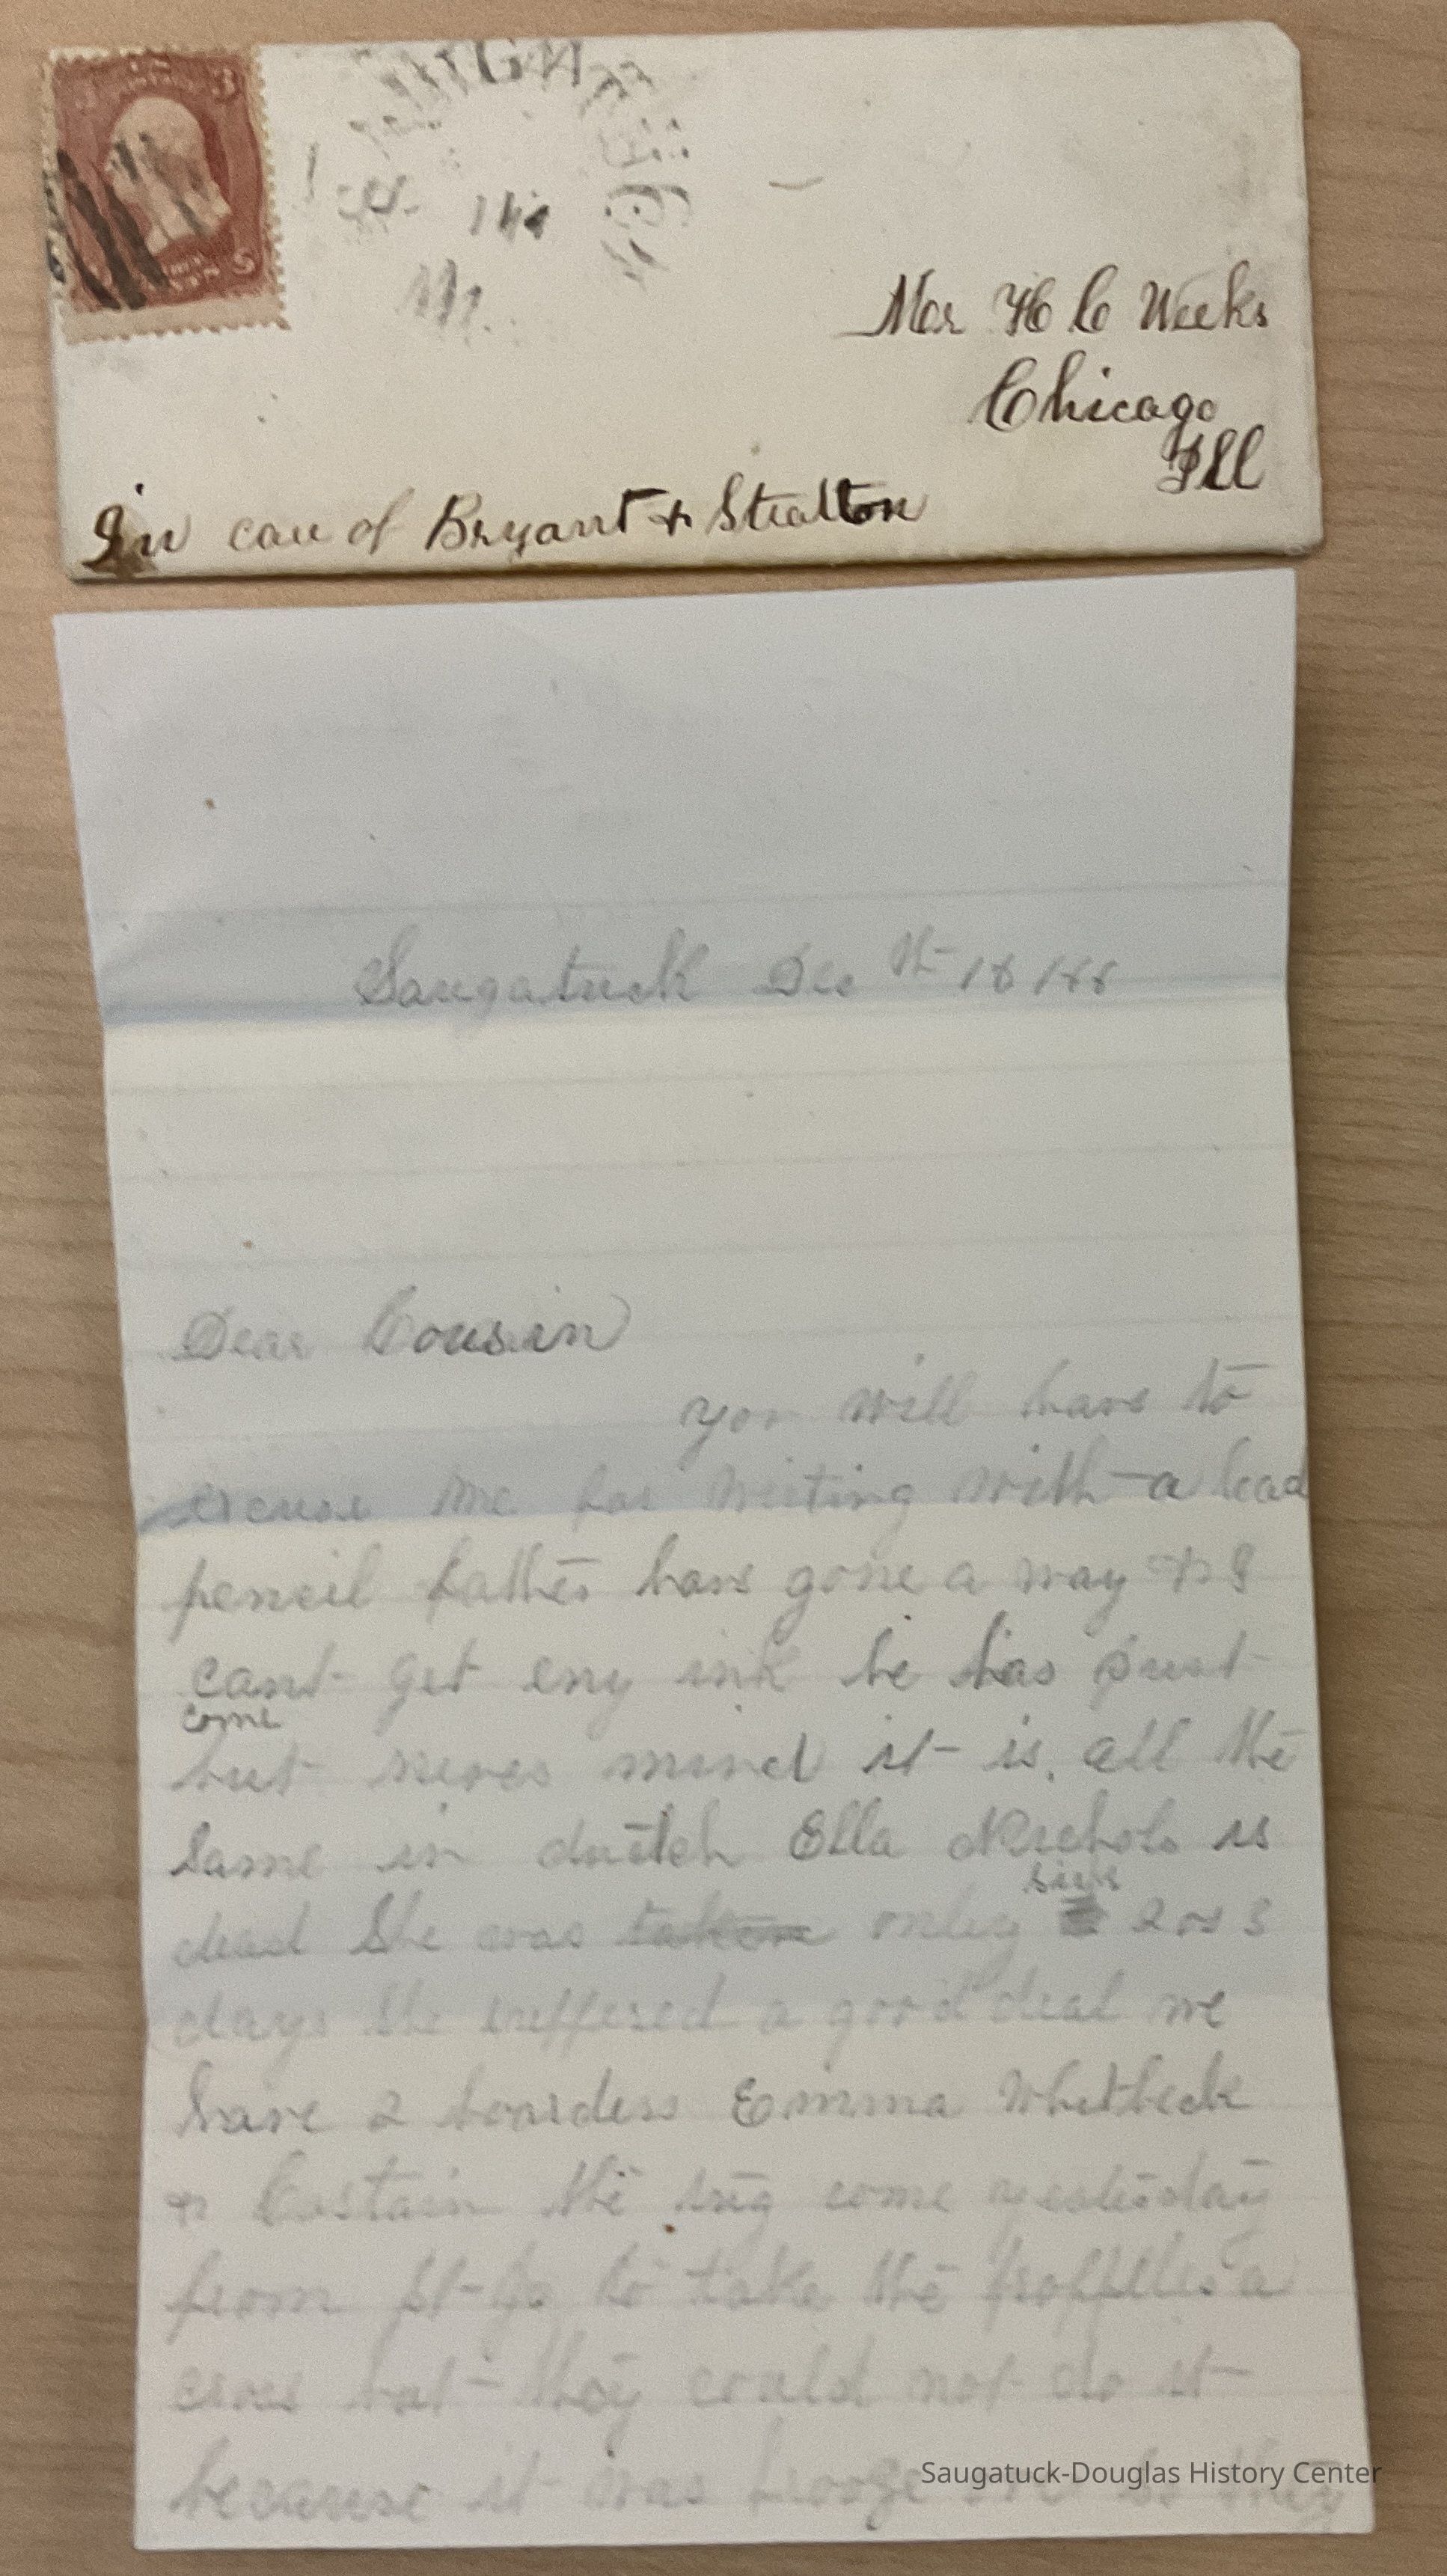 Mr H C Weeks
Chicago
Ill
In care of Bryant & Stratton
Saugatuck Dec th 18
Dear Cousin
you will have to
excuse me for writing with a lead
pencil father have gone a way & I
cant get eny ink he has just
come
but never mind it is all the
same in dutch Ella Nichols is
sick
dead She was taken only 2 or 3
days She suffered a good deal we
have 2 boarders Emma Whitbeck
& the tug come yesterday
from to take the a
cross but they could not do it
because it was froze so they
Saugatuck-Douglas History Center